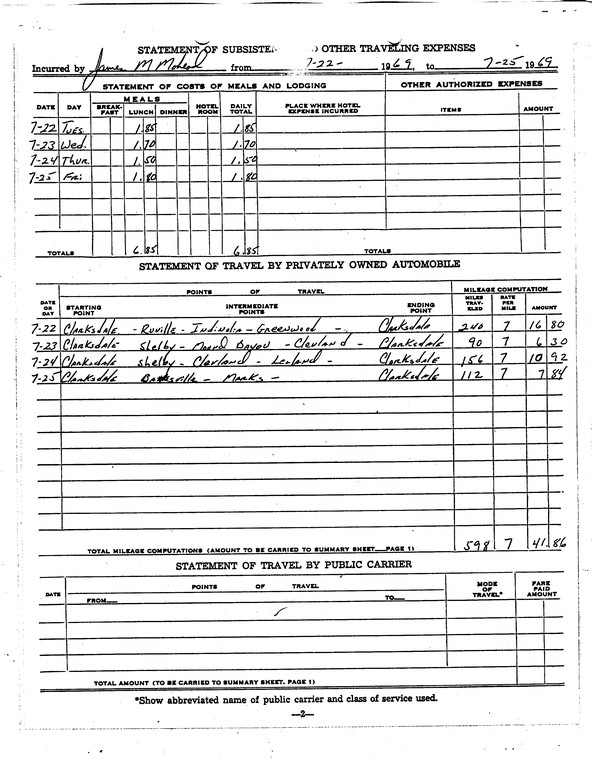 STATEMENT OF SUBSISTEN OTHER TRAVELING EXPENSES
Incurred by James M from 7-22- 1969, to 7-25 1969
STATEMENT OF COSTS OF MEALS AND LODGING OTHER AUTHORIZED EXPENSES
MEALS
DATE DAY BREAK-FAST LUNCH DINNER HOTEL ROOM DAILY TOTAL PLACE WHERE HOTEL EXPENSE INCURRED ITEMS AMOUNT
7-22 Tues. 1.85 1.85
7-23 Wed. 1.70 1.70
7-24 Thur. 1.50 1.50
7-25 Fri 1.80 1.80
TOTALS 6.85 6.85 TOTALS
STATEMENT OF TRAVEL BY PRIVATELY OWNED AUTOMOBILE
POINTS OF TRAVEL MILEAGE COMPUTATION
DATE OR DAY STARTING POINT INTERMEDIATE POINTS ENDING POINT MILES TRAV-ELED RATE PER MILE AMOUNT
7-22 Clarksdale - Ruville - Indinola - Greenwood - Clarksdale 240 7 16 80
7-23 Clarksdale - Shelby - Mound Bayou - Clevland - Clarksdale 90 7 6 30
7-24 Clarksdale Shelby - Clevland - Leland - Clarksdale 156 7 10 92
7-25 Clarksdale Batesville - Marks - Clarksdale 112 7 7 84
TOTAL MILEAGE COMPUTATIONS (AMOUNT TO BE CARRIED TO SUMMARY SHEET PAGE 1) 598 7 41.86
STATEMENT OF TRAVEL BY PUBLIC CARRIER
DATE POINTS OF TRAVEL MODE OF TRAVEL* FARE PAID AMOUNT
FROM TO
TOTAL AMOUNT (TO BE CARRIED TO SUMMARY SHEET, PAGE 1)
*Show abbreviated name of public carrier and class of service used.
—2—